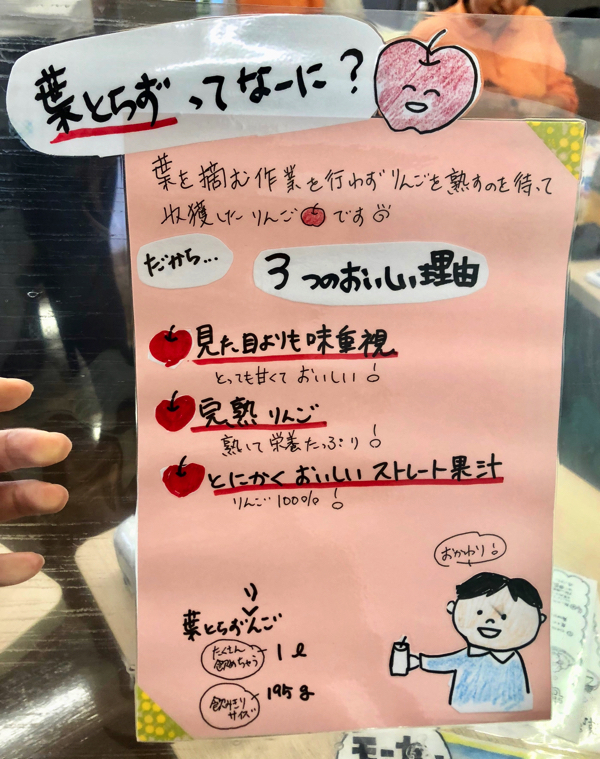 葉とらずってなーに?
葉を摘む作業を行わずりんごを熟すのを待って
収獲したりんごです
だから...
3つのおいしい理由
見た目よりも味重視
とっても甘くておいしい!
完熟りんご
熟いて栄養たっぷり!
とにかくおいしいストレート果汁
りんご100%!
おかわり!
り
葉とらずんご
たくさん
飲めちゃう
1ℓ
飲みきり
サイズ
195g
モーカ